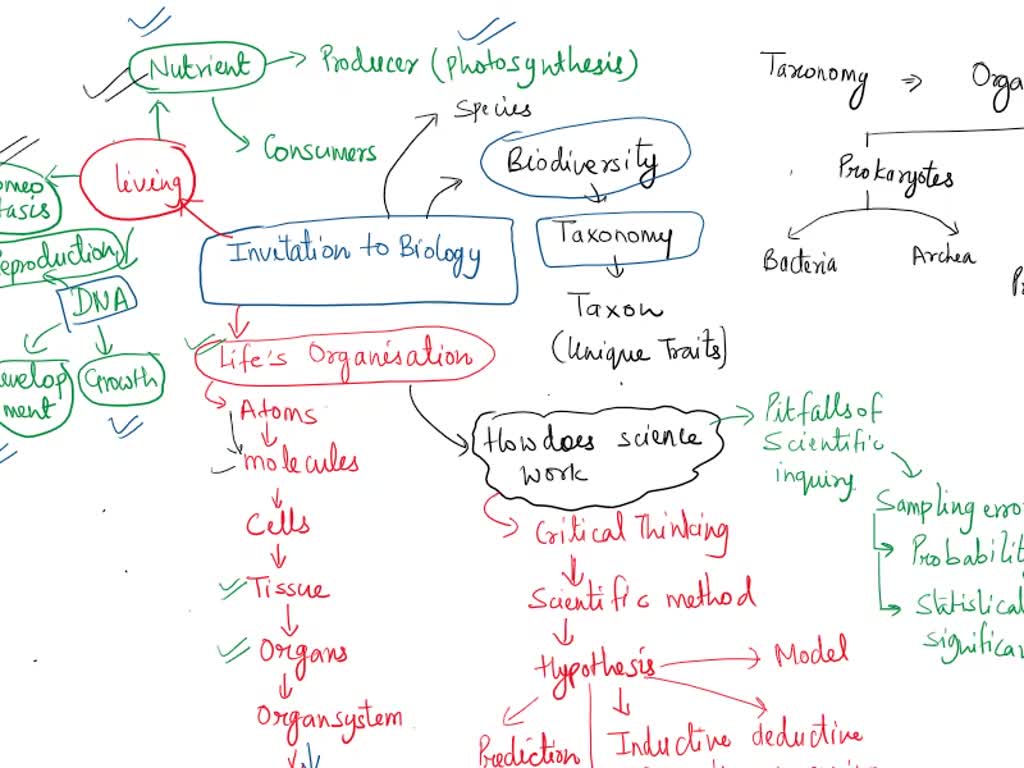 Nutrient
Producer (photosynthesis)
Consumers
Species
Biodiversity
Taxonomy
Taxon
(Unique Traits)
Taxonomy ⇒
Prokaryotes
Bacteria
Archea
living
Invitation to Biology
DNA
Growth
ment
Life's Organisation
Atoms
molecules
Cells
Tissue
Organs
Organsystem
How does science
work
Critical Thinking
Scientific method
Hypothesis
Model
Prediction
Inductive deductive
Pitfalls of
Scientific
inquiry
Sampling